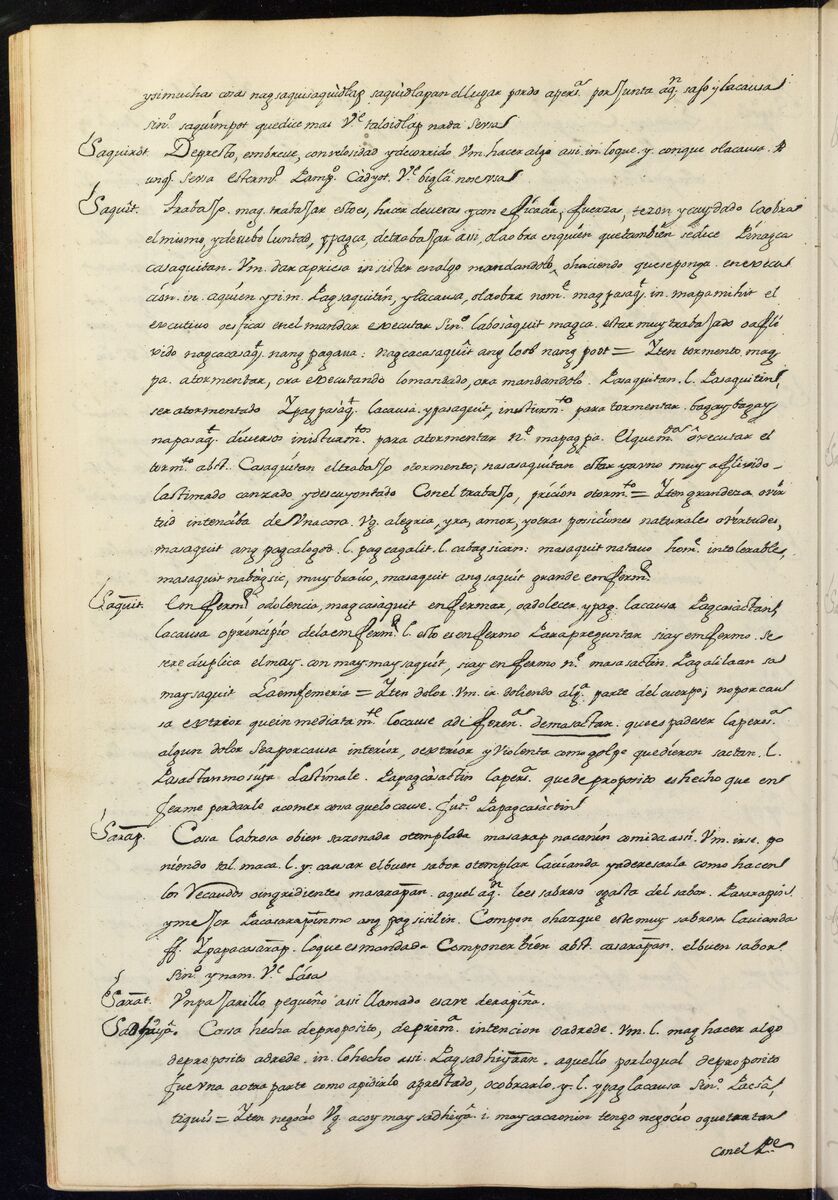 y si muchas cosas nagsaquisaquidlap saquidlapan el lugar por do a pers.ª por Junta aq.n saso y la causa
sin.º saquimpot que dice mas V.e taloidlap nada sensa
Saquirdt. De presto, em breve, con velosidad y de corrido Vm. hacer algo assi. in. lo que. y. con que o la causa.
Saquit. Trabajo. mag. trabajar esto es, hacer de veras y con efficacia, fuerzas, tezon y cuydado la obra
el mismo, y de su boluntad, ypagca, de trabajar assi, o la obra en quien que tambien se dice Pinagca
casaquitan. Vm. dar apriesa insister en algo mandandolo, o haciendo que se ponga en execu
çion. in. a quien y si m. Pagsaquitin, y la causa, o la obra nom.e magpasaq.t in. mapamihit el
executivo o eficas en el mandar executar Sin.º labosàquit magca. estar muy trabajado o afli
xido nagcacasaq.t nang pagava: nagcacasaquit ang loob nang poot = Yten tormento, mag
pa. atormentar, ora executando lo mandado, ora mandandolo. Pasaquitan. l. Pasaquitin,
ser atormentado Ypagpasaq.t la causa. ypasaquit, insturm.to para tormentar. bagay bagay
na pasaq.t diversos insturm.tos para atormentar n.e mapagpa. El que m.da executar el
torm.to abst. Casaquitan el trabajo o tormento; nasasaquitan estar ya uno muy aflixido
lastimado canzado, y descuyontado Con el trabajo, pricion o torm.to = Yten grandeza o vir
tud intenciba de Una cosa. Vg. alegria, yra, amor, y otras posiciones naturales o virtudes,
masaquit ang pagcalogod. l. pagcagalit. l. cabagsican: masaquit na tauo hom.e intolerable,
masaquit nabagsic, muy bravo, masaquit ang saquit grande emferm.d
Saquit. Emferm.d o dolencia, magcasàquit enfermar, o adolecer, ypag. la causa Pagcasactan,
la causa o prencipio de la emferm.d l. esto es enfermo Para preguntar si ay emfermo. se
se re duplica el may. con maymaysaquit, si ay enfermo n.e masasactin. Pagalilaan sa
maysaquit La emfemeria = Yten dolor. Vm. ir doliendo alg.ª parte del cuerpo; no por cau
sa extreor que inmediatam.te lo cause a diferen.ª demasaltan. que es padeser la pers.ª
algun dolor sea por causa interior, o extrior y violenta como golpe que dieron sactan. l.
Pasactan mo siya Lastimale. Papagcàsactin la pers.ª que de proposito es hecho que en
ferme por darlo a comer cosa que lo cause. fut.º Papagcasactin
Sarap. Cossa labrosa o bien sazonada o templada masarap na canin comida assi. Vm. irse. po
niendo tal. maca. l. y. causar el buen sabor o templar la vianda y aderesarla como hacen
los Vecaudos o ingridientes masarapan. aquel aq.n le es sabroso o gasta del sabor. Pasarapin
y mejor Pacasarapin mo ang pagsisilin. Compon o haz que este muy sabrosa la vianda
ff. Ypapacasarap. lo que es mandada Componer bien abst. casarapan. el buen sabor
Sin.º ynam. V.e Lasa
Sarat. Un pajarillo pequeño assi llamado es ave de rapiña.
Sadhiya. Cossa hecha de proposito, de prim.ª intencion o adrede. Vm. l. mag hacer algo
de proposito adrede. in. lo hecho assi. Pagsadhiyaan. aquello por lo qual de proposito
fue una a otra parte como a pidirlo a prestado, o cobrarlo. y. l. ypag la causa Sin.º
tiquis = Yten negocio Vg. acoy may sadhiya. i. may cacaonin tengo negocio o que tratar
con el P.e